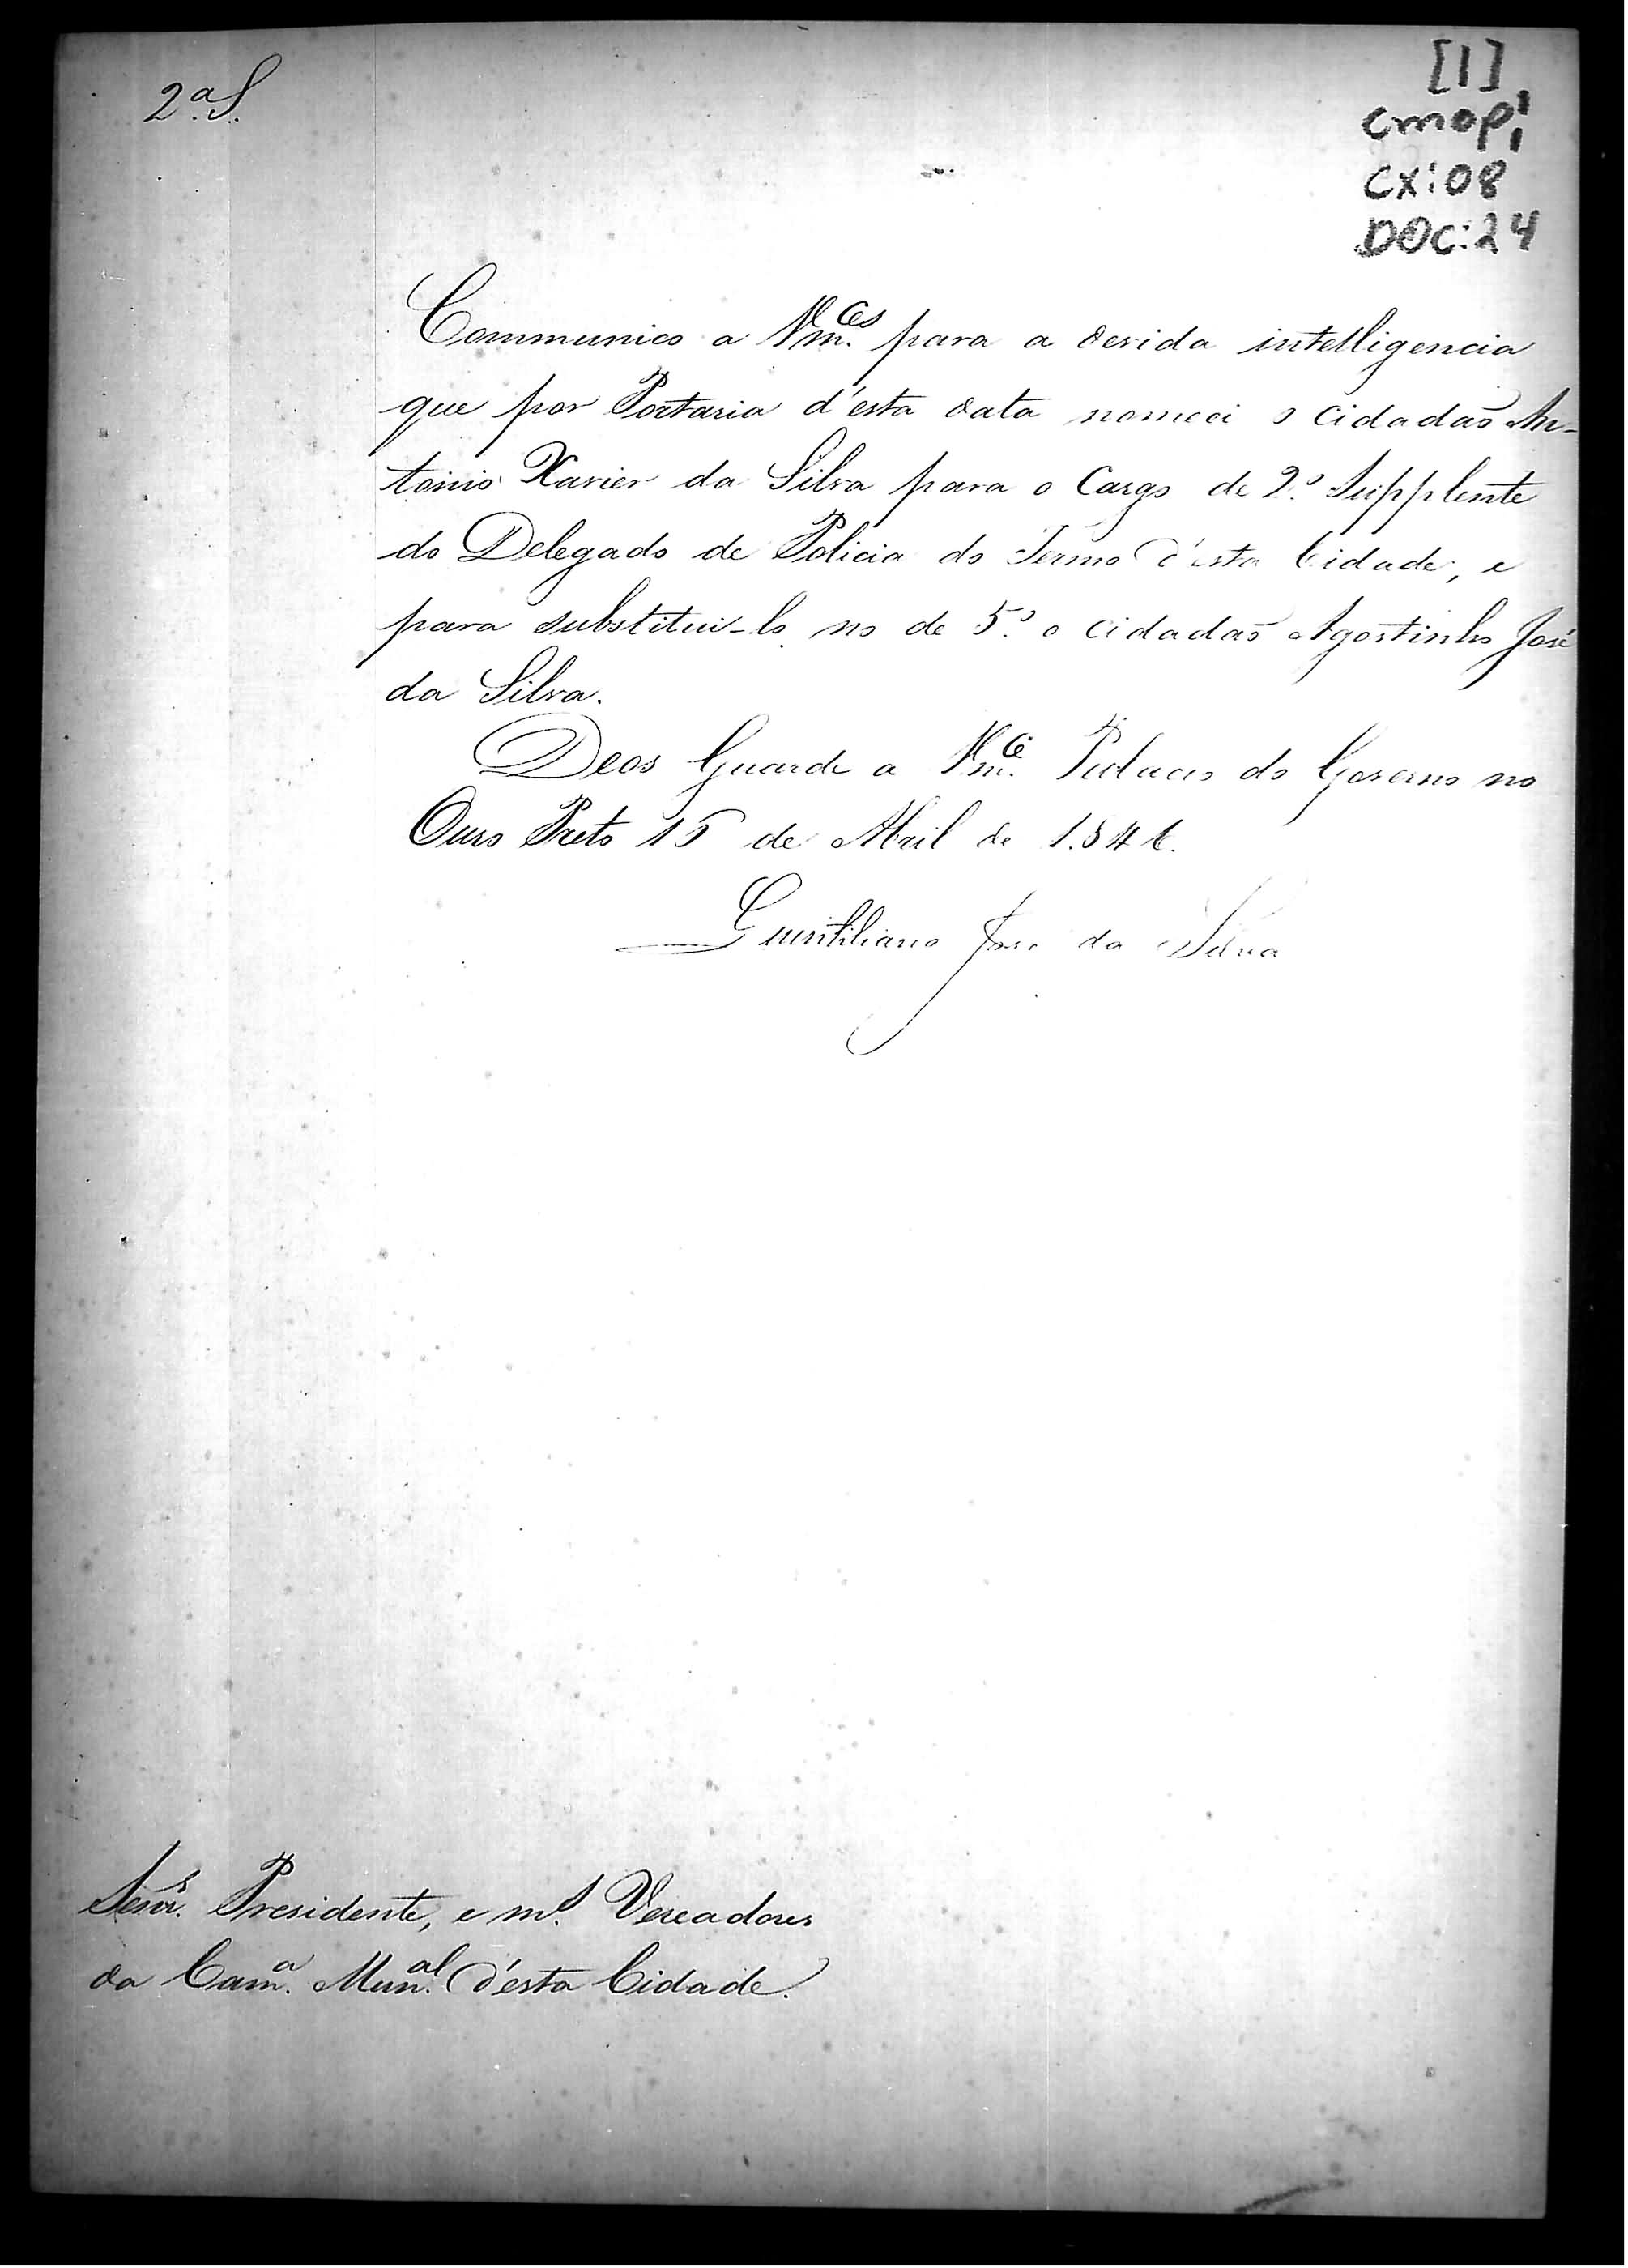 2.ª S.
[1]
CMOP
CX:08
DOC:24
Communico a Vm.ces para a devida intelligencia
que por Portaria d'esta data nomeei o cidadaõ An-
tonio Xavier da Silva para o Cargo de 2.º Supplente
do Delegado de Policia do Termo d'esta Cidade, e
para substitui-lo no de 5.º o cidadaõ Agostinho José
da Silva.
Deos Guarde a Vm.ce Palacio do Governo no
Ouro Preto 15 de Abril de
Quintiliano José da Silva
Senr.s Presidente, e m.s Vereadores
da Cam.a Mun.al d'esta Cidade.